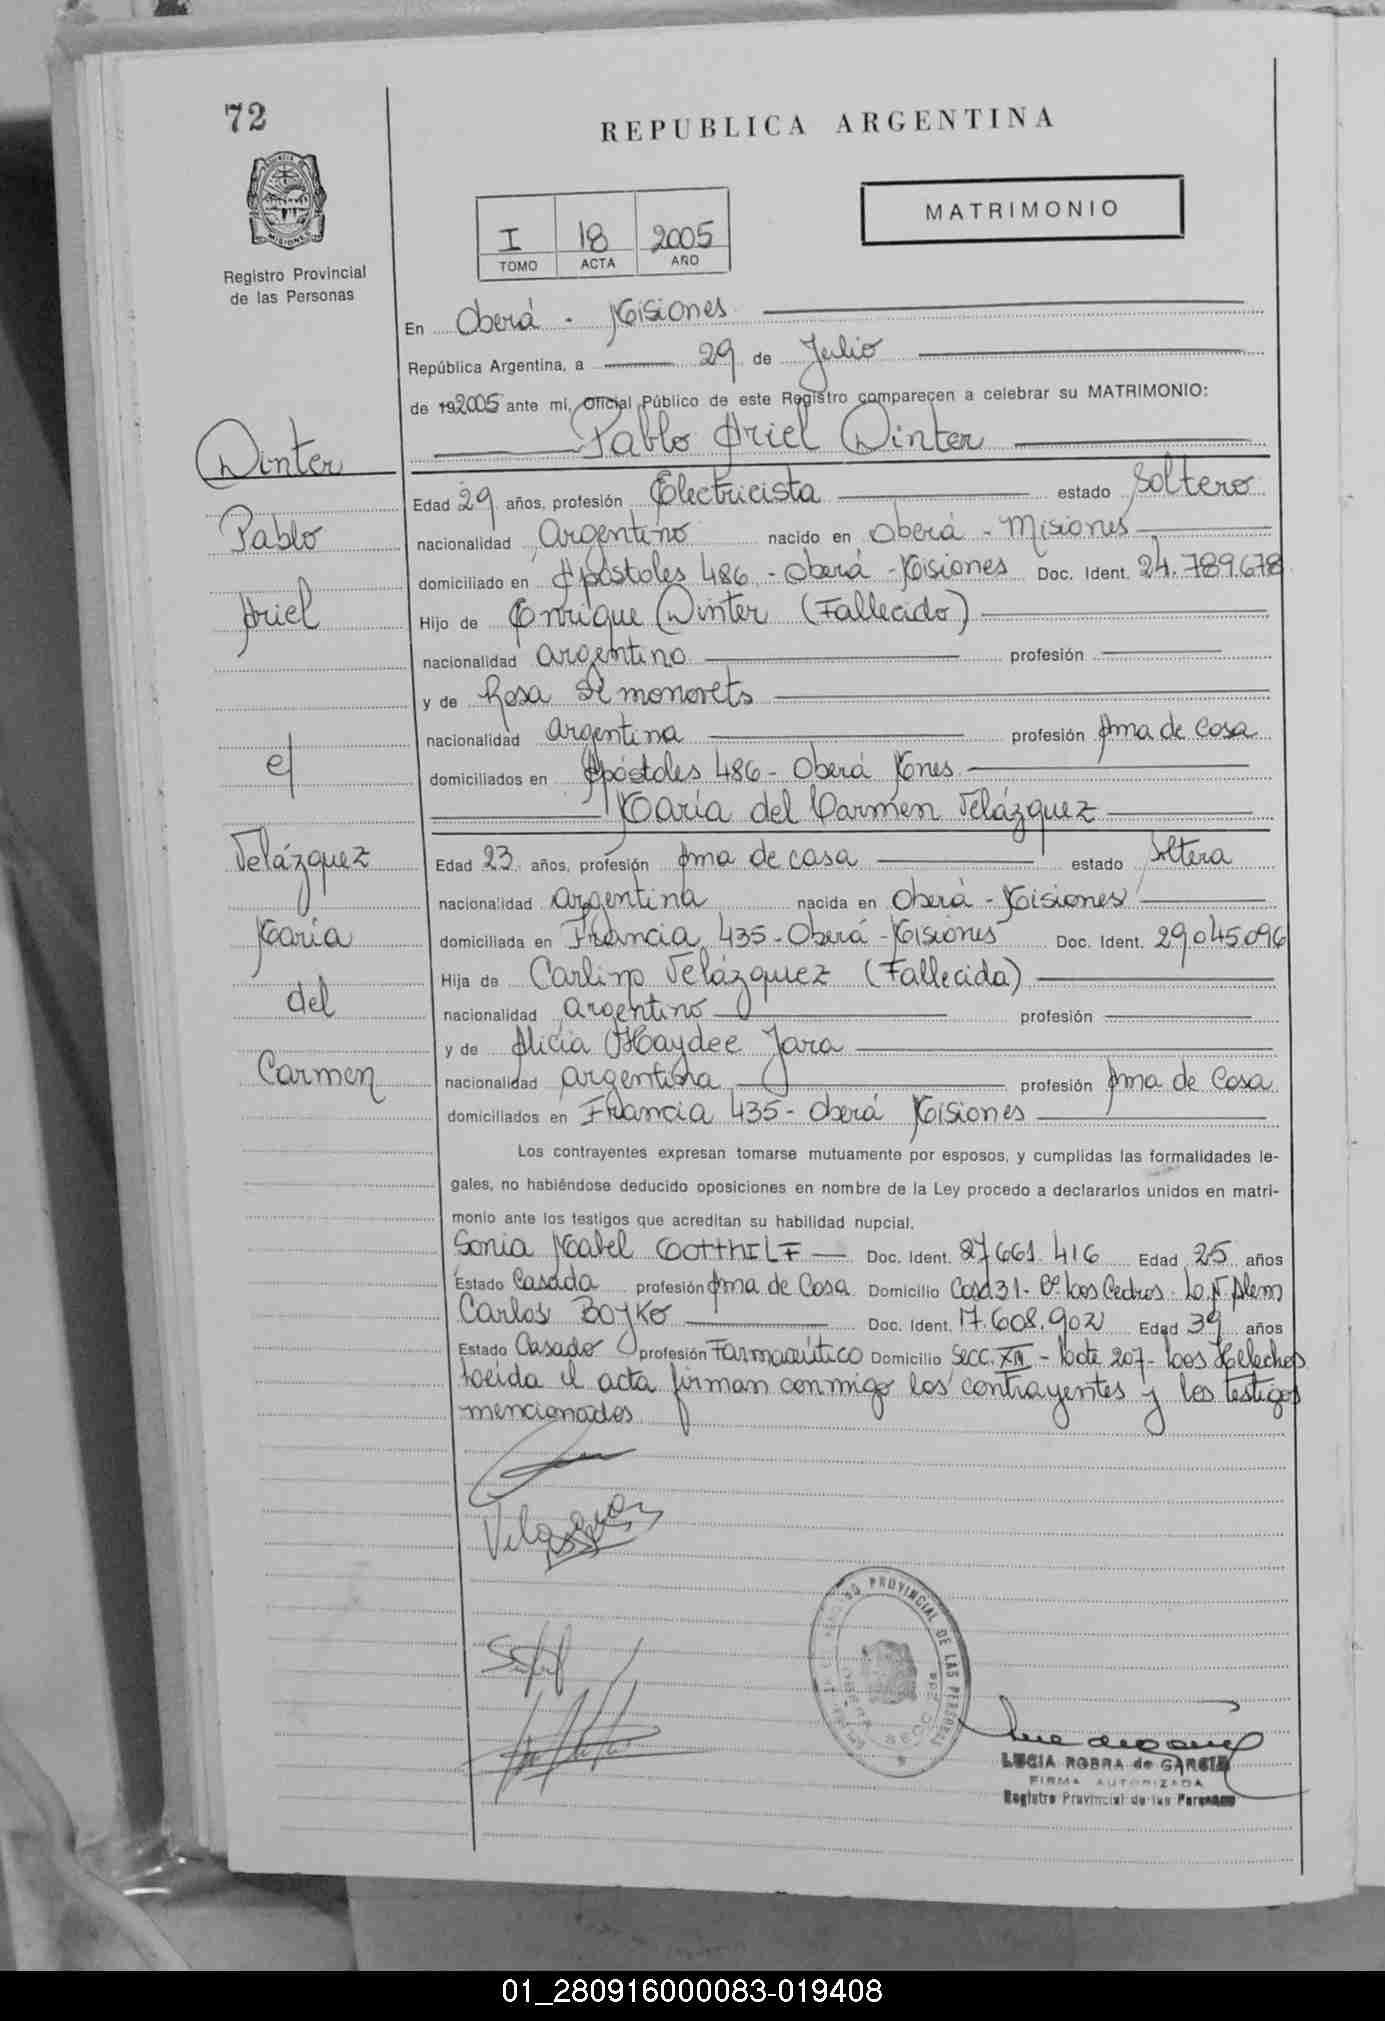 72
REPUBLICA ARGENTINA
MATRIMONIO
I 18 2005
TOMO ACTA AÑO
PROVINCIA DE MISIONES
Registro Provincial
de las Personas
En Oberá - Misiones
República Argentina, a 29 de Julio
de 192005 ante mí, Oficial Público de este Registro comparecen a celebrar su MATRIMONIO:
Winter
Pablo Ariel Winter
Edad 29 años, profesión Electricista estado Soltero
Pablo
nacionalidad Argentino nacido en Oberá - Misiones
domiciliado en Apóstoles 486 - Oberá - Misiones Doc. Ident. 24.789.678
Ariel
Hijo de Enrique Winter (Fallecido)
nacionalidad argentino profesión
y de Rosa Simonovets
nacionalidad argentina profesión Ama de Casa
e/
domiciliados en Apóstoles 486 - Oberá Mnes
María del Carmen Velázquez
Velázquez
Edad 23 años, profesión Ama de casa estado Soltera
nacionalidad argentina nacida en Oberá - Misiones
María
domiciliada en Francia 435 - Oberá - Misiones Doc. Ident. 29.045.096
Hija de Carlino Velázquez (Fallecida)
del
nacionalidad argentino profesión
y de Alicia Haydee Jara
Carmen
nacionalidad argentina profesión Ama de Casa
domiciliados en Francia 435 - Oberá Misiones
Los contrayentes expresan tomarse mutuamente por esposos, y cumplidas las formalidades le-
gales, no habiéndose deducido oposiciones en nombre de la Ley procedo a declararlos unidos en matri-
monio ante los testigos que acreditan su habilidad nupcial.
Sonia Mabel GOTTHILF Doc. Ident. 27661.416 Edad 25 años
Estado Casada profesión Ama de Casa Domicilio Casa 31 - Bº Los Cedros - L. N. Alem
Carlos BOYKO Doc. Ident. 17.608.902 Edad 39 años
Estado Casado profesión Farmacéutico Domicilio Secc. XIII - Lote 207 - Los Helechos
Leída el acta firman conmigo los contrayentes y los testigos
mencionados
Velazquez
PROVINCIAL DE LAS PERSONAS
LUCIA ROBRA de GARCIA
FIRMA AUTORIZADA
Registro Provincial de las Personas
01_280916000083-019408